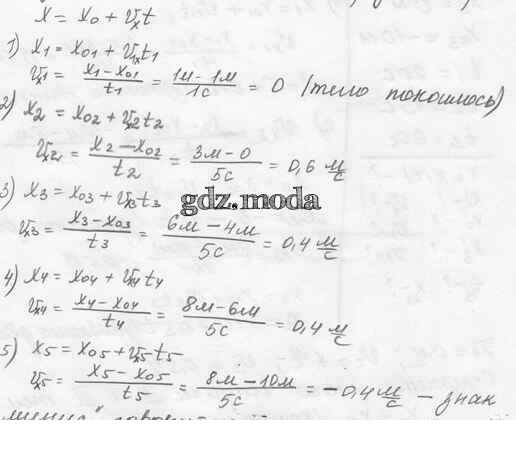 x = x₀ + υₓt
1) x₁ = x₀₁ + υₓ₁t₁
υₓ₁ = (x₁ − x₀₁)/t₁ = (1м − 1м)/1с = 0 (тело покоилось)
2) x₂ = x₀₂ + υₓ₂t₂
υₓ₂ = (x₂ − x₀₂)/t₂ = (3м − 0)/5с = 0,6 м/с
3) x₃ = x₀₃ + υₓ₃t₃
gdz.moda
υₓ₃ = (x₃ − x₀₃)/t₃ = (6м − 4м)/5с = 0,4 м/с
4) x₄ = x₀₄ + υₓ₄t₄
υₓ₄ = (x₄ − x₀₄)/t₄ = (8м − 6м)/5с = 0,4 м/с
5) x₅ = x₀₅ + υₓ₅t₅
υₓ₅ = (x₅ − x₀₅)/t₅ = (8м − 10м)/5с = −0,4 м/с − знак